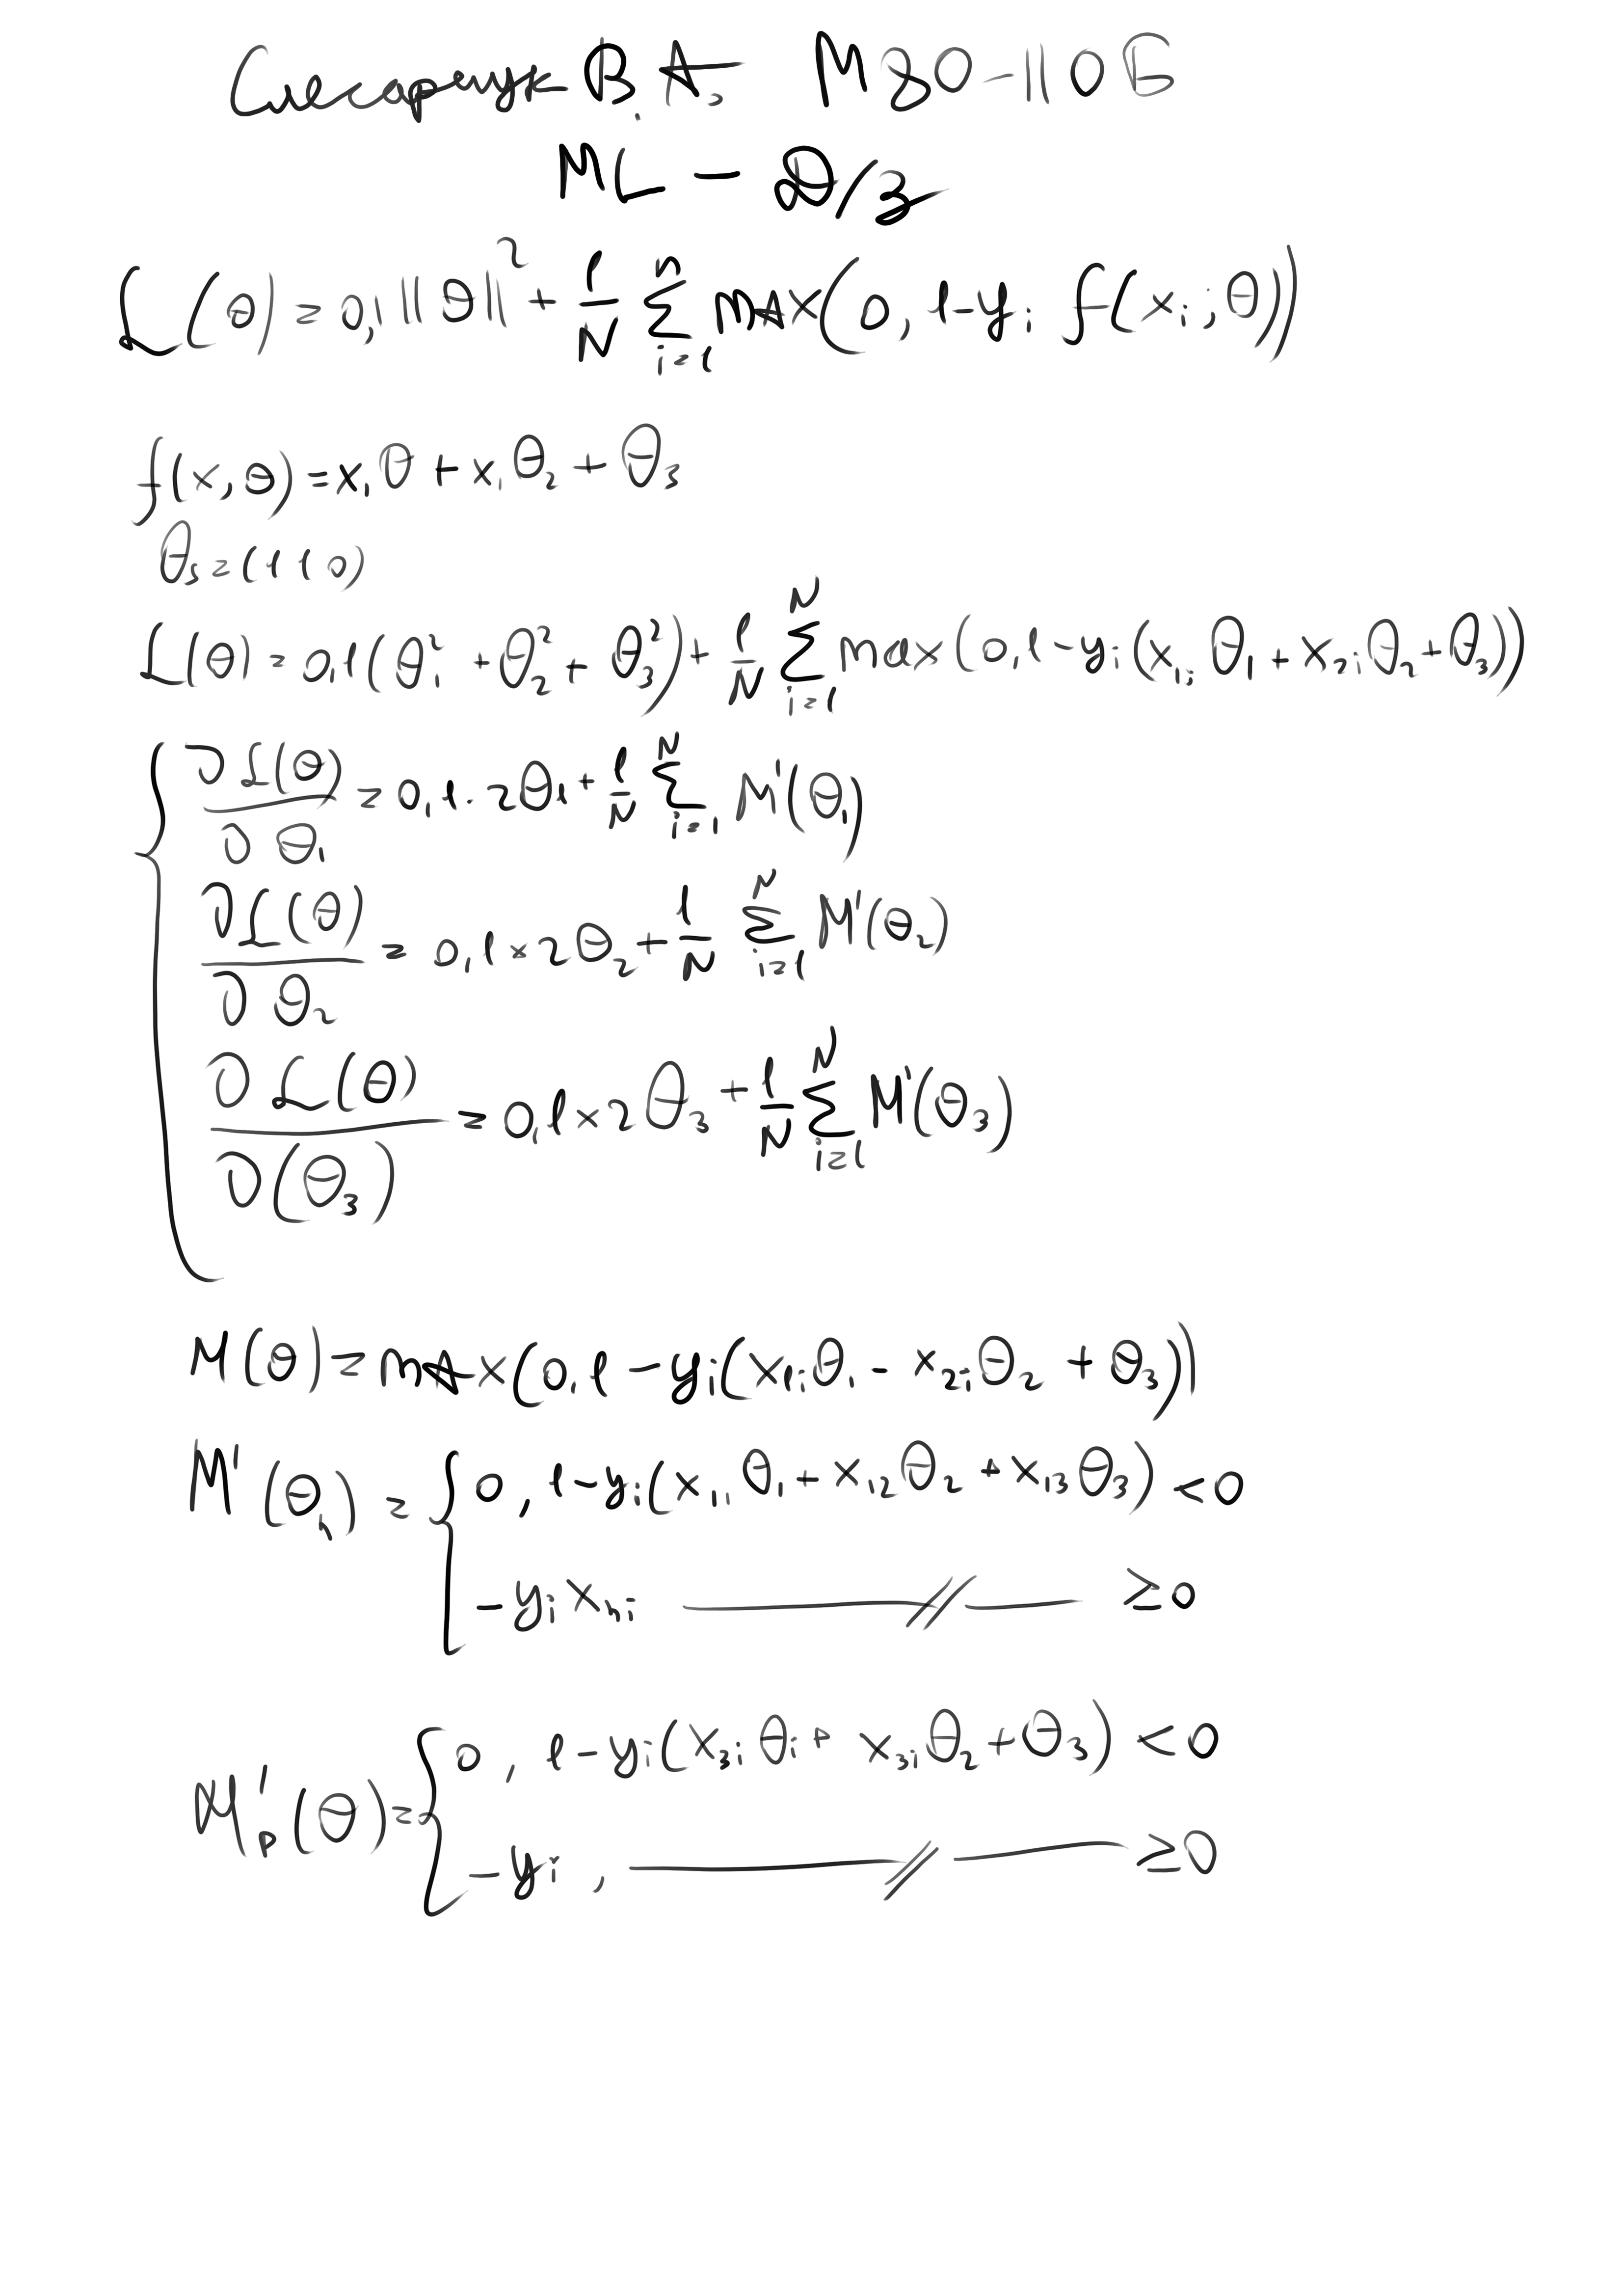 В.А. М80-110Б
ML - Д/з
L(θ) = 0,1||θ||² + 1/N Σ_{i=1}^{N} MAX(0, 1-y_i f(x_i; θ))
f(x, θ) = x₁θ + x₁θ₂ + θ₃
θ_s = (1 1 0)
L(θ) = 0,1(θ₁² + θ₂² + θ₃²) + 1/N Σ_{i=1}^{N} max(0, 1-y_i(x_{1i}θ₁ + x_{2i}θ₂ + θ₃))
{ ∂L(θ)/∂θ₁ = 0,1·2θ₁ + 1/N Σ_{i=1}^{N} M'(θ₁)
∂L(θ)/∂θ₂ = 0,1×2θ₂ + 1/N Σ_{i=1}^{N} M'(θ₂)
∂L(θ)/∂(θ₃) = 0,1×2θ₃ + 1/N Σ_{i=1}^{N} M'(θ₃)
M(θ) = MAX(0, 1 - y_i(x_{1i}θ₁ - x_{2i}θ₂ + θ₃))
M'(θ_n) = { 0, 1-y_i(x₁₁θ₁ + x₁₂θ₂ + x₁₃θ₃) < 0
-y_i x_{ni} —//— ≥0
M'_b(θ) = { 0, 1-y_i(x_{3i}θ_i + x_{3i}θ₂ + θ₃) < 0
-y_i, —//— ≥0